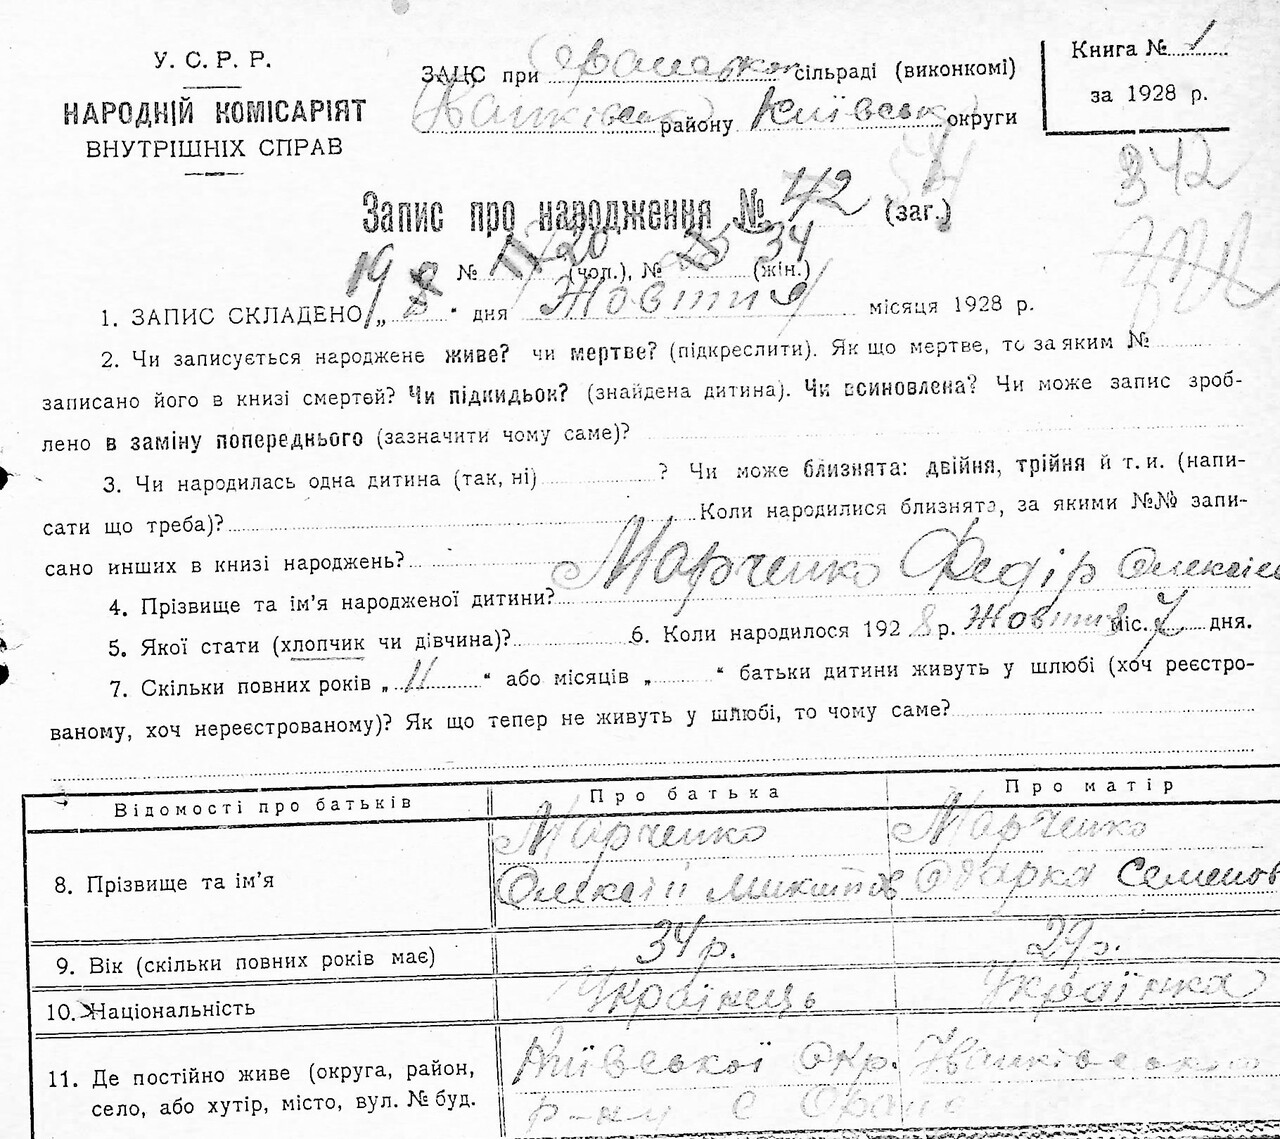 У. С. Р. Р.
НАРОДНІЙ КОМІСАРІЯТ
ВНУТРІШНІХ СПРАВ
ЗАЦС при сільраді (виконкомі)
району Київськ округи
Книга № 1
за 1928 р.
342
Запис про народження № 42 (заг.)
№ 20 (чол.), № 34 (жін.)
1. ЗАПИС СКЛАДЕНО „ 8 “ дня Жовтня місяця 1928 р.
2. Чи записується народжене живе? чи мертве? (підкреслити). Як що мертве, то за яким №
записано його в книзі смертей? Чи підкидьок? (знайдена дитина). Чи всиновлена? Чи може запис зроб-
лено в заміну попереднього (зазначити чому саме)?
3. Чи народилась одна дитина (так, ні) ? Чи може близнята: двійня, трійня й т. и. (напи-
сати що треба)? Коли народилися близнята, за якими №№ запи-
сано инших в книзі народжень?
4. Прізвище та ім’я народженої дитини? Марченко Федір Олексієв
5. Якої стати (хлопчик чи дівчина)? 6. Коли народилось 192 8 р. Жовтня міс. 7 дня.
7. Скільки повних років „ 11 “ або місяців „ “ батьки дитини живуть у шлюбі (хоч реєстро-
ваному, хоч нереєстрованому)? Як що тепер не живуть у шлюбі, то чому саме?
Відомості про батьків Про батька Про матір
8. Прізвище та ім’я Марченко Олексій Марченко Одарка Семенов
9. Вік (скільки повних років має) 34 р. 29 р.
10. Національність Українець Українка
11. Де постійно живе (округа, район, Київської окр. Іванківськ
село, або хутір, місто, вул. № буд. р-ну с